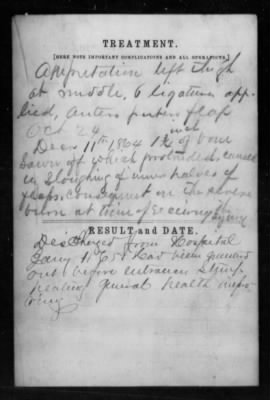 TREATMENT.
[HERE NOTE IMPORTANT COMPLICATIONS AND ALL OPERATIONS.]
Amputation left thigh
at middle, 6 ligatures app-
lied, flap
Oct 24
inch
Decr 11th 1864 1½ of bone
sawn off which protruded, caused
by Sloughing of inner halves of
flaps, consequent on the severe
burn at time of receiving the
injury
RESULT and DATE.
Discharged from Hospital
Jany 11 65. Had been
out before entrance Stump
healing general health impr-
oving